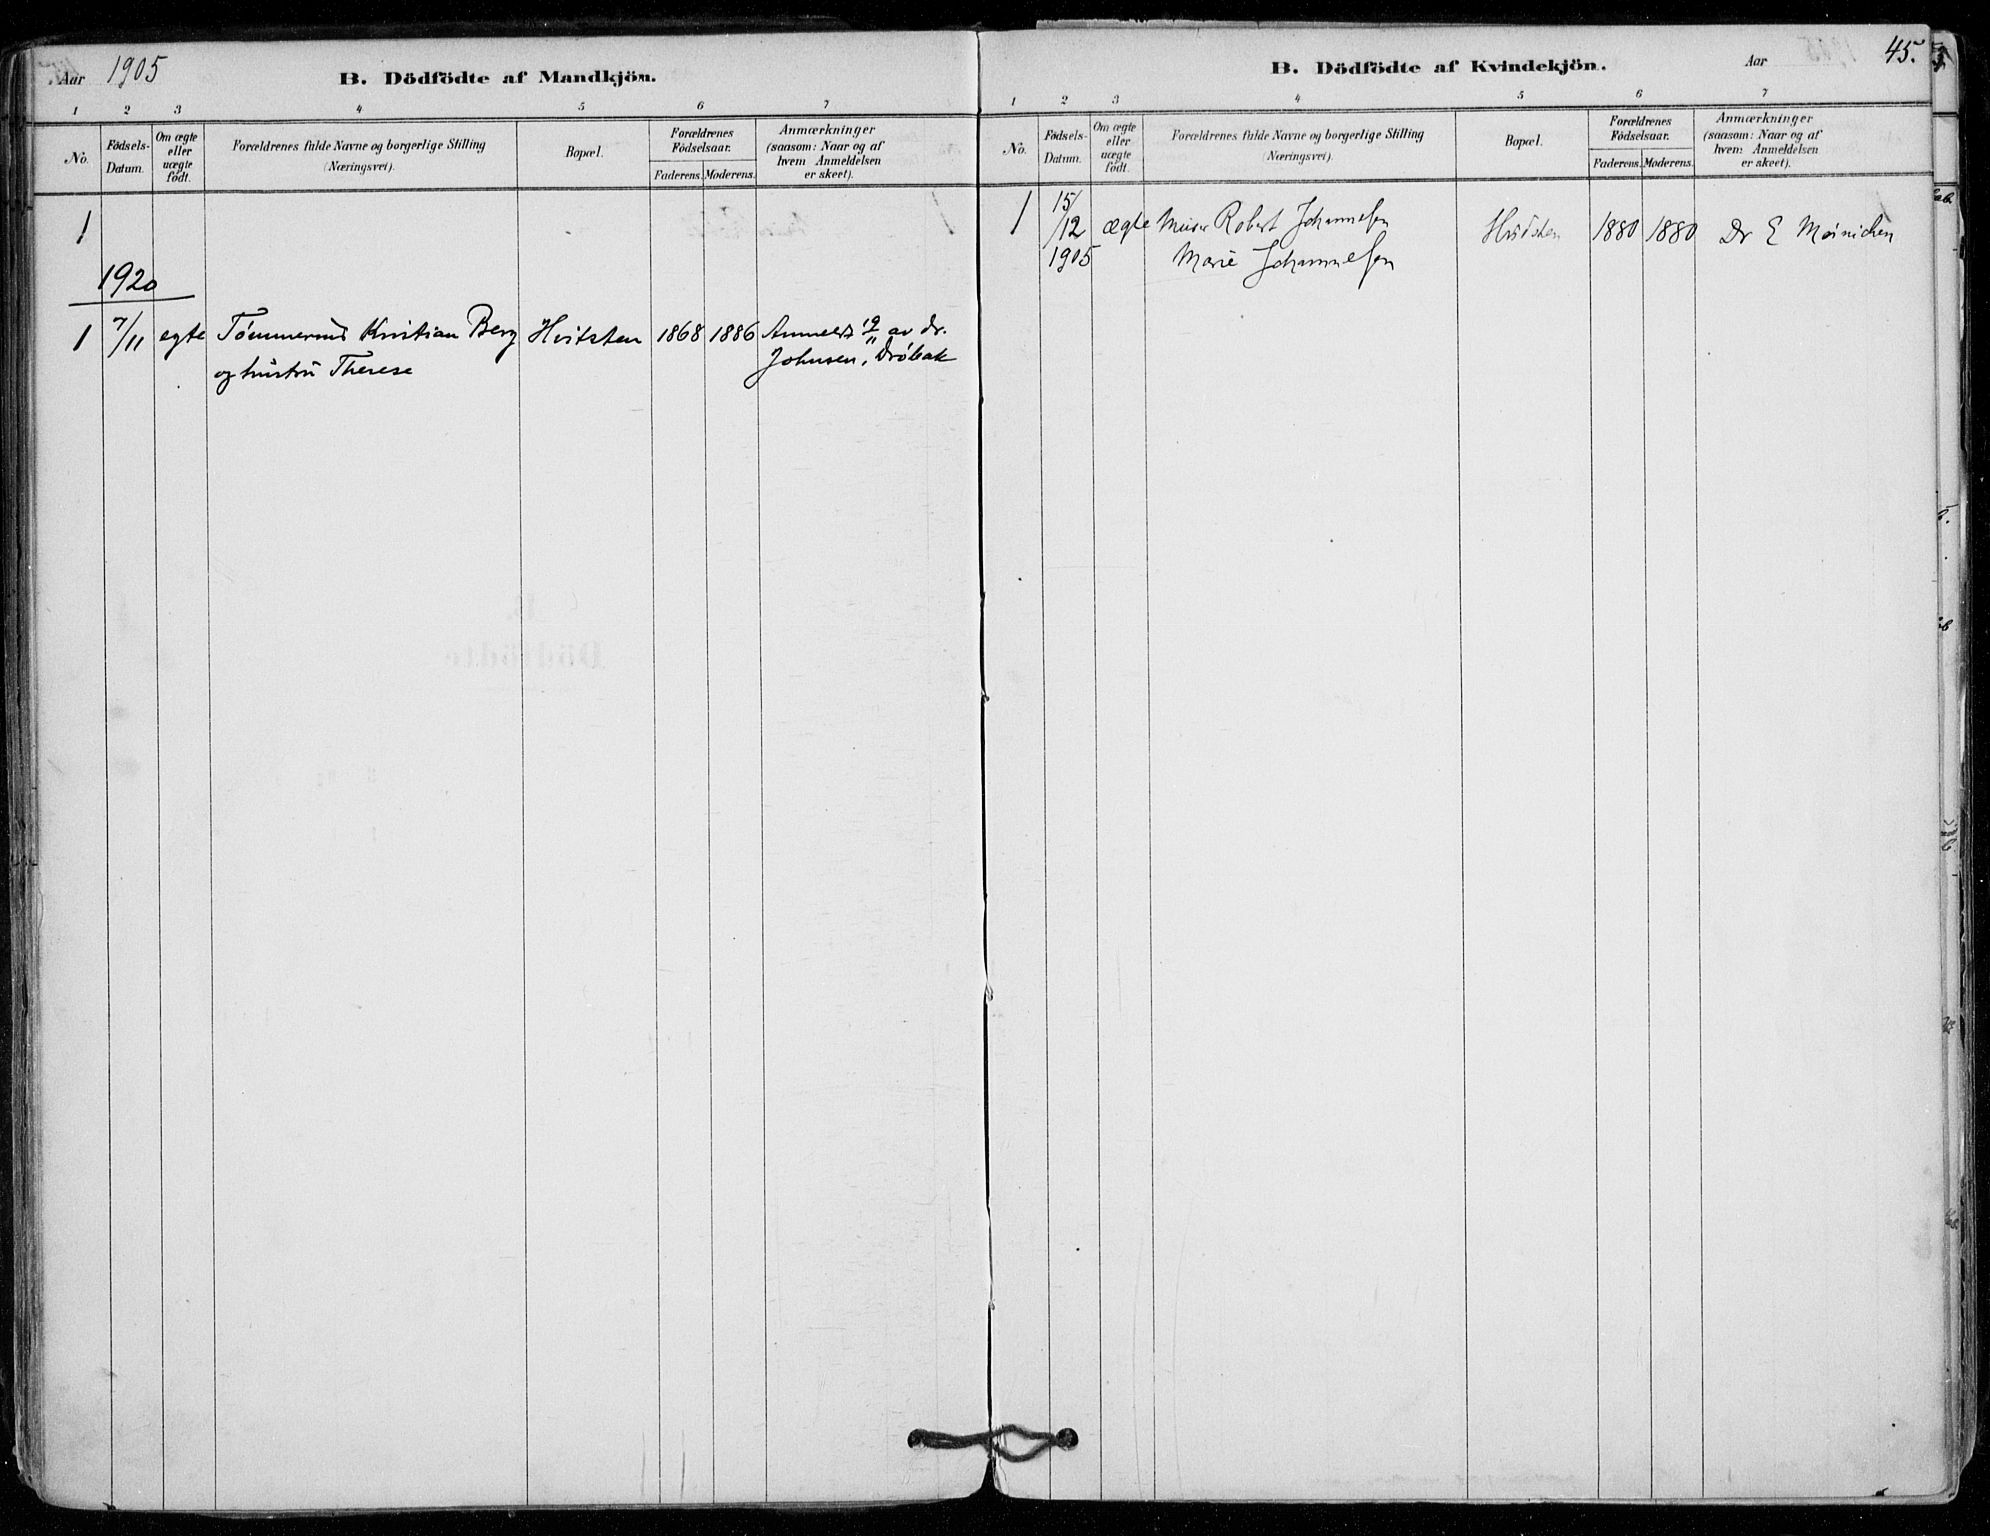 Aar 1905
B. Dödfödte af Mandkjön.
1 2 3 4 5 6 7
No.
Födsels-
Datum.
Om ægte
eller
uægte
födt.
Forældrenes fulde Navne og borgerlige Stilling
(Næringsvei).
Bopæl.
Forældrenes
Födselsaar.
Faderens. Moderens.
Anmærkninger
(saasom: Naar og af
hvem Anmeldelsen
er skeet).
1
1920
1 7/11 egte Tømmermd Kristian Berg Hvitsten 1868 1886 Anmeldt 19/11 av dr.
og hustru Therese Johnsen, Drøbak
45.
B. Dödfödte af Kvindekjön.
Aar
1 2 3 4 5 6 7
No.
Födsels-
Datum.
Om ægte
eller
uægte
födt.
Forældrenes fulde Navne og borgerlige Stilling
(Næringsvei).
Bopæl.
Forældrenes
Födselsaar.
Faderens. Moderens.
Anmærkninger
(saasom: Naar og af
hvem Anmeldelsen
er skeet).
1 15/12 ægte Robert Johannesen Hvidsten 1880 1880 Dr E Møinichen
1905 Marie Johannesen